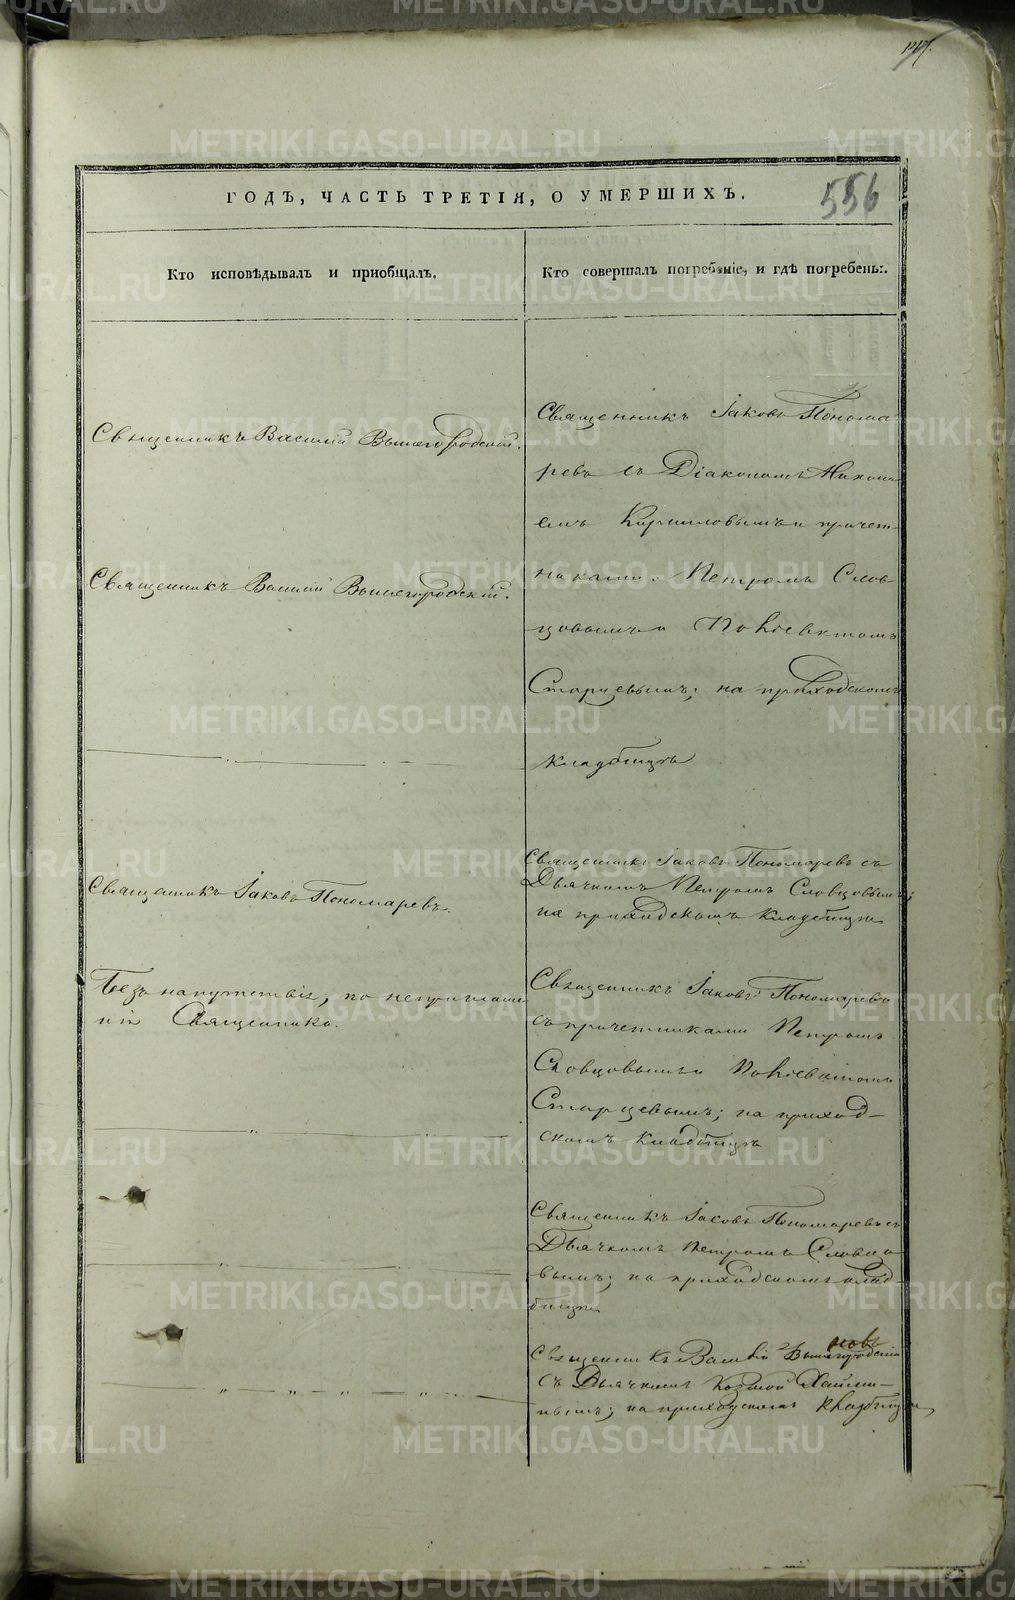 556
ГОДЪ, ЧАСТЬ ТРЕТІЯ, О УМЕРШИХЪ.
Кто исповѣдывалъ и пріобщалъ.
Кто совершалъ погребеніе, и гдѣ погребены.
Священникъ Василій Вышегородскій.
Священникъ Іаковъ Понома
ревъ съ Діакономъ Никола
емъ Кирилловымъ и причет-
Священникъ Василій Вышегородскій.
никами. Петромъ Слов
цовымъ и
Старцевымъ; на приходскомъ
кладбищѣ
Священникъ Іаковъ Пономаревъ.
Священникъ Іаковъ Пономаревъ съ
Дьячкомъ Петромъ Словцовымъ;
на приходскомъ кладбищѣ
Безъ напутствія, по неприглаше
нію Священника.
Священникъ Іаковъ Пономаревъ
съ причетниками Петромъ
Словцовымъ и
Старцевымъ; на приход-
скомъ кладбищѣ
Священникъ Іаковъ Пономаревъ съ
Дьячкомъ Петромъ Словцо
вымъ; на приходскомъ клад-
бищѣ
Священникъ Василій Вышегородскій
съ Дьячкомъ Козмой
на приходскомъ кладбищѣ
METRIKI.GASO-URAL.RU